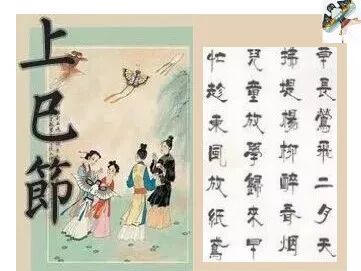 上巳節
草長鶯飛二月天
拂堤楊柳醉春烟
兒童放學歸來早
忙趁東風放紙鳶